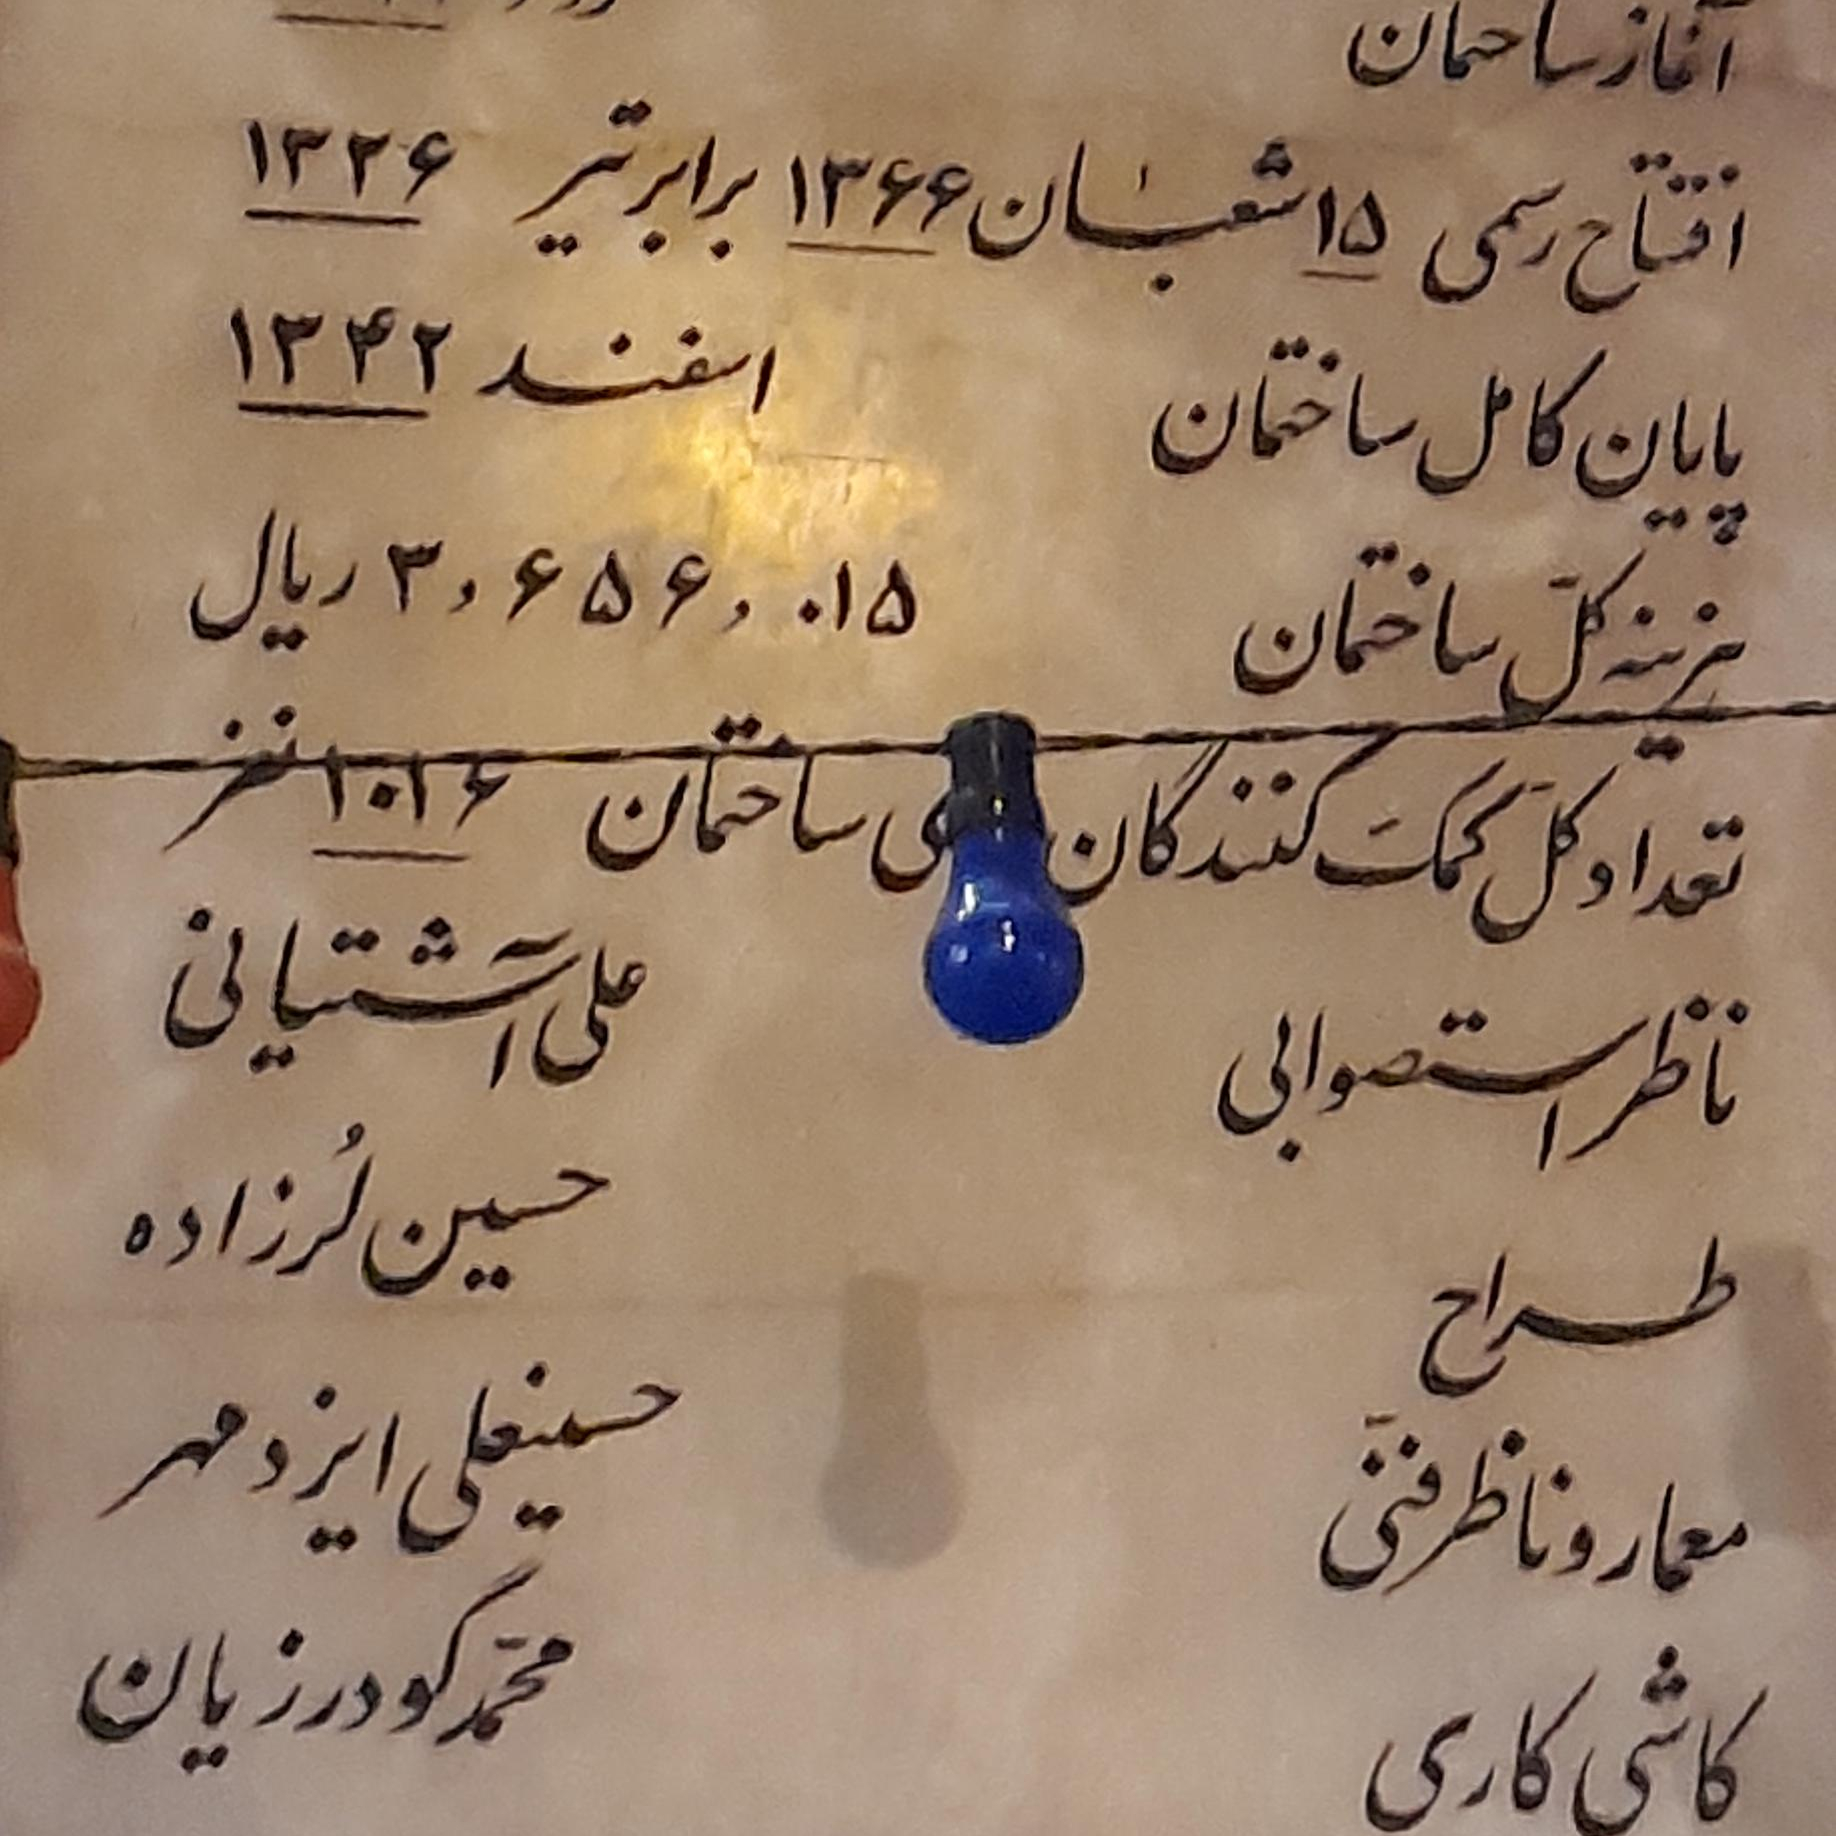 آغاز ساختمان
افتتاح رسمی ۱۵ شعبان ۱۳۶۶ برابر تیر ۱۳۲۶
پایان کامل ساختمان اسفند ۱۳۴۲
هزینه کلّ ساختمان ۳,۶۵۶,۰۱۵ ریال
تعداد کل کمک کنندگان ساختمان ۱۰۱۶ نفر
ناظر استصوابی علی آشتیانی
طراح حسین لُرزاده
معمار و ناظر فنّی حسینعلی ایزدمهر
کاشی کاری محمّد گودرزیان